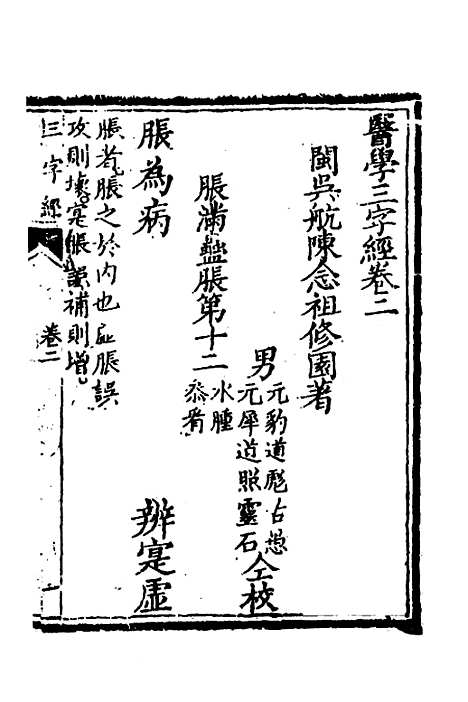 醫學三字經卷二
閩吳航陳念祖修園著
男
元豹道彪古愚
元犀道照靈石
仝校
脹滿蠱脹第十二
水腫
叅看
脹為病
辨寔虛
脹者脹之於内也虛脹誤
攻則壞寔脹誤補則增
三字經
卷二
一